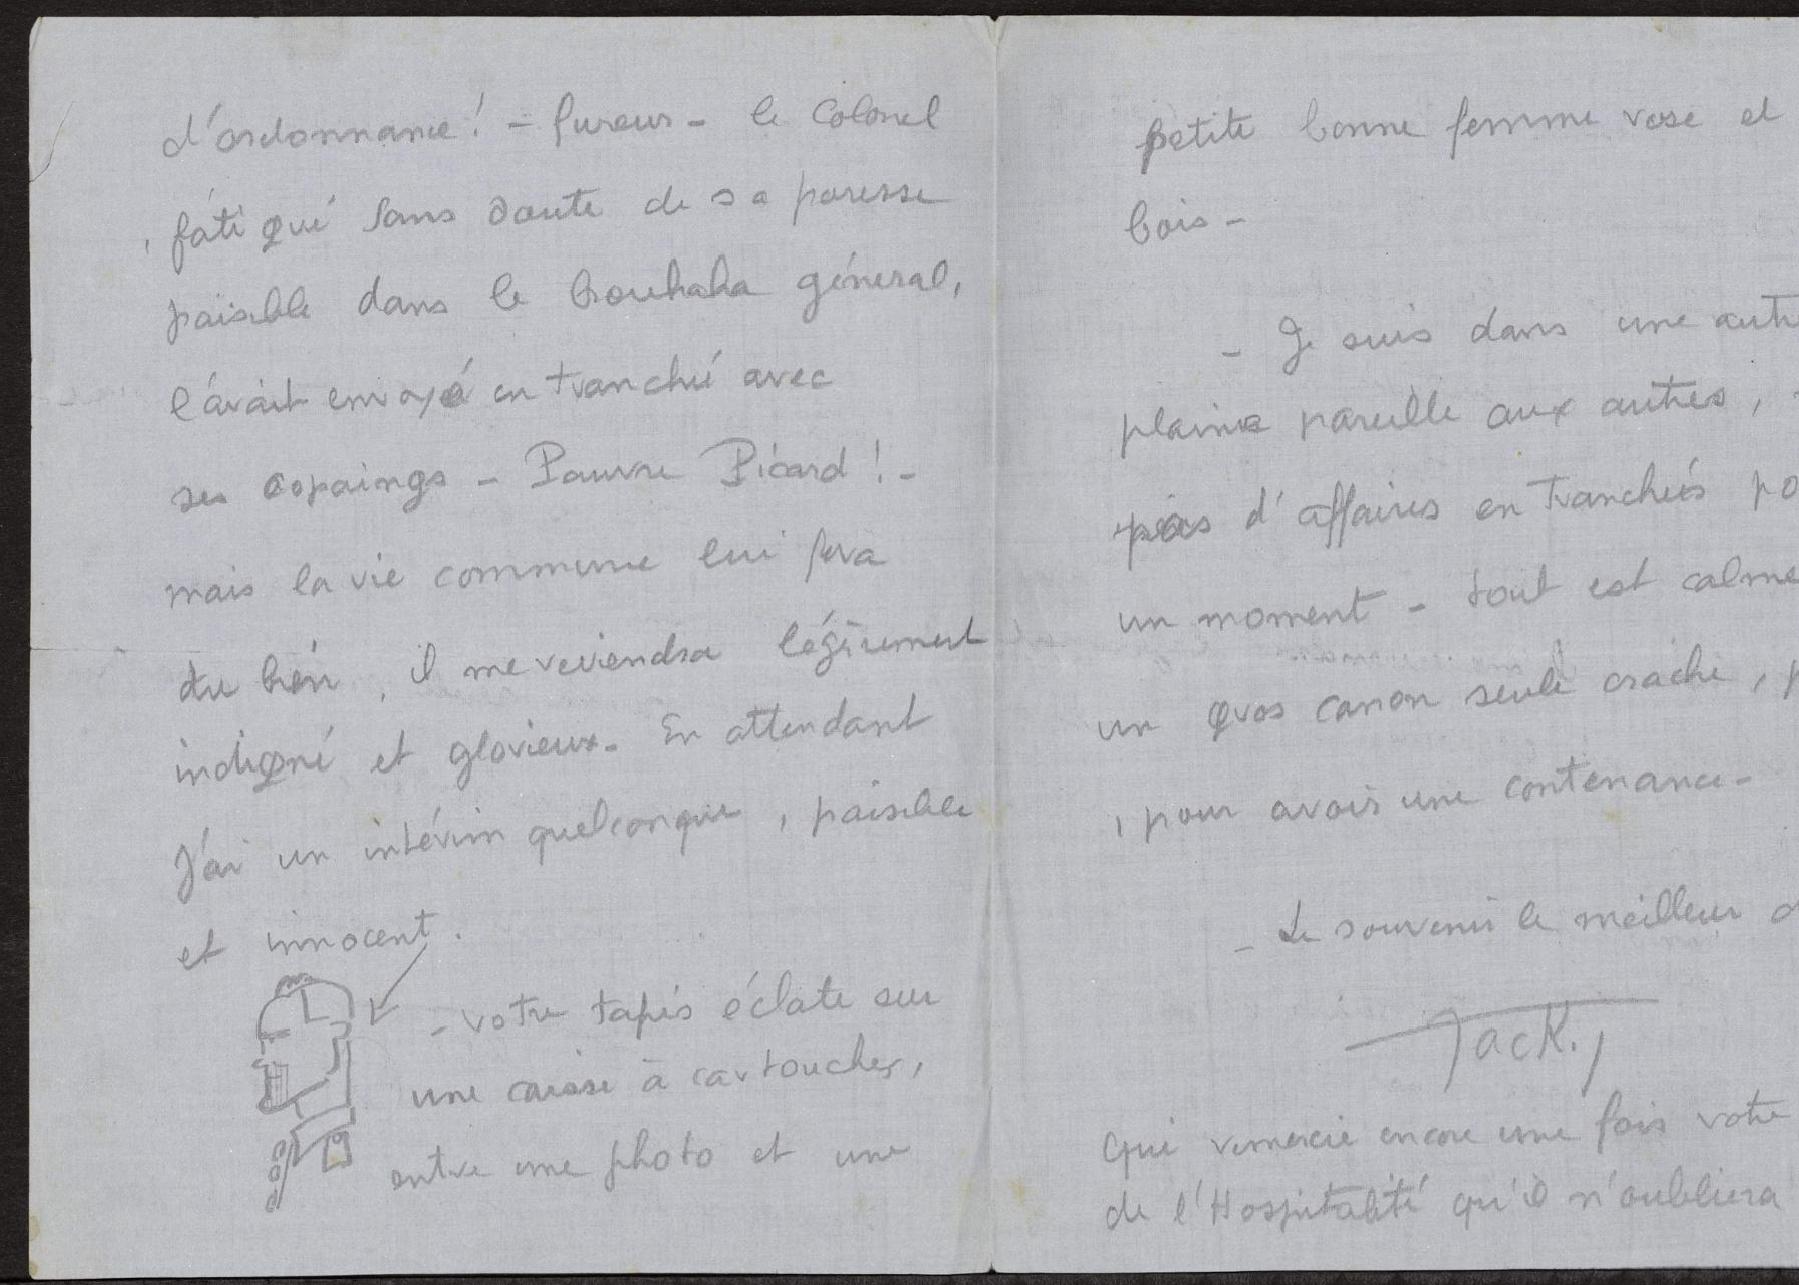 d'ordonnance! - fureur - le Colonel
, fatigué sans doute de sa paresse
paisible dans le brouhaha général,
l'avait envoyé en tranchée avec
ses copaings - Pauvre Picard ! -
mais la vie commune lui fera
du bien, il me reviendra légèrement
indigné et glorieux. En attendant
J'ai un intérim quelconque, paisible
et innocent.
- votre tapis éclate sur
une caisse à cartouches,
entre une photo et une
petite bonne femme rose et
bois -
- Je suis dans une autre
plaine pareille aux autres,
pas d'affaires en tranchées
un moment - tout est calme
un gros canon seule crache,
, pour avoir une contenance -
- Le souvenir le meilleur
Jack.
qui remercie encore une fois votre
de l'Hospitalité qu'il n'oubliera